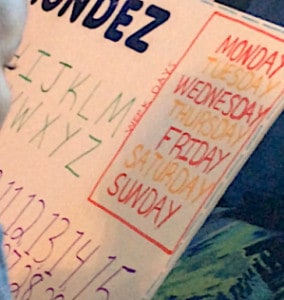 NDEZ
IJKLM
WXYZ
WEEK DAYS
MONDAY
TUESDAY
WEDNESDAY
THURSDAY
FRIDAY
SATURDAY
SUNDAY
12 13 14 15